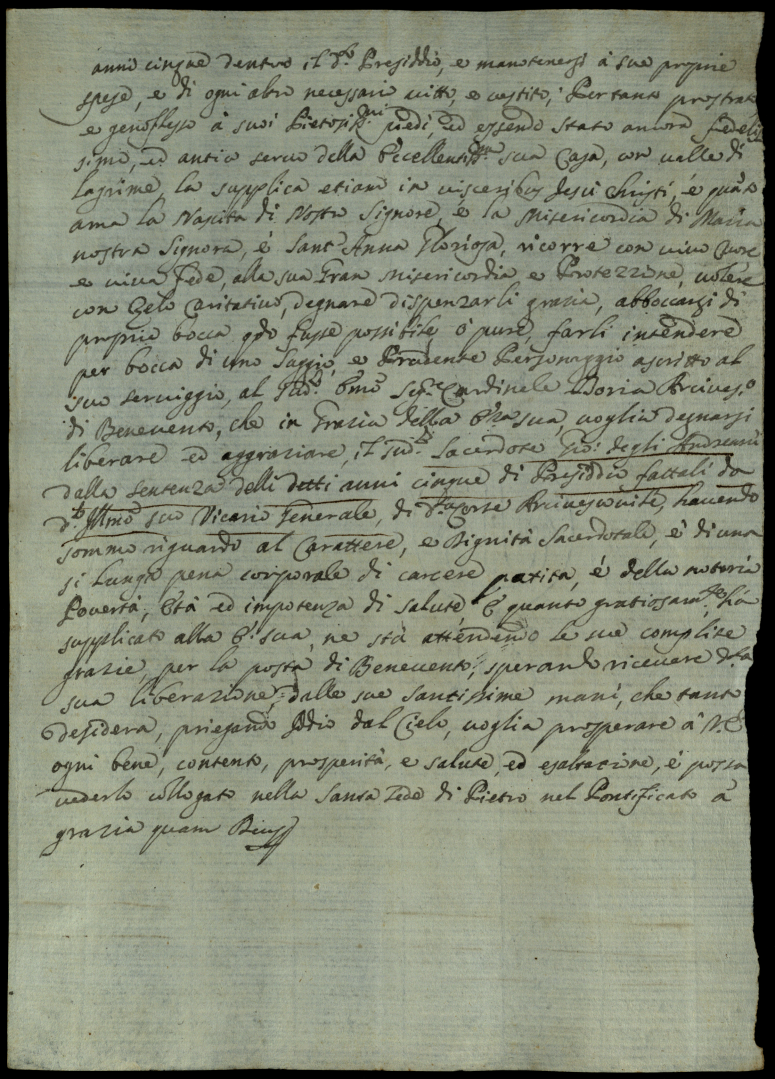 anni cinque dentro il d.º Presiddio, e manotenersi à sue proprie
spese, e di ogni altro necessario vitto, e vestito; Pertanto prostrato
e genoflesso à suoi Pietosis.mi piedi, ed essendo stato ancora fedelis
simo, ed antico servo della Eccellentis.ma sua Casa, con valle di
lagrime, la supplica etiam in visceribus Jesu Christi, é quanto
ama la Nascita di Nostro Signore, é la Misericordia di Maria
nostra Signora, é Sant'Anna Gloriosa, ricorre con vivo Cuore
e viva fede, alla sua Gran Misericordia e Protezzione, volere
con Zelo Caritativo, degnare dispenzarli grazia, abboccarsi di
propria bocca q.do fusse possibile, ó pure, farli intendere
per bocca di uno Saggio, e Prudente Personaggio ascritto al
suo serviggio, al sud.º Em.º Sig.re Cardinale Doria Arcives.º
di Benevento, che in Grazia della E.za sua, voglia degnarsi
liberare ed aggraziare, il sud.º Sacerdote Gio: degli Andreani
dalla sentenza delli detti anni cinque di Presiddio fattali da
d.º Ill.mo suo Vicario Generale, di d.ª Corte Arcivescovile, havendo
sommo riguardo al Carattere, e Dignità Sacerdotale, é di una
si lunga pena corporale di carcere patita, é della notoria
Povertà, Età ed impotenza di salute, E quanto gratiosam.te há
supplicato alla E. sua, ne stà attendendo le sue complite
grazie, per la posta di Benevento, sperando ricevere d.ta
sua liberazione, dalle sue santissime mani, che tanto
desidera, priegando Iddio dal Cielo, voglia prosperare à V.E.
ogni bene, contento, prosperità, e salute, ed esaltazione, é possa
vederlo collogato nella Santa Sede di Pietro nel Pontificato á
grazia quam Deus